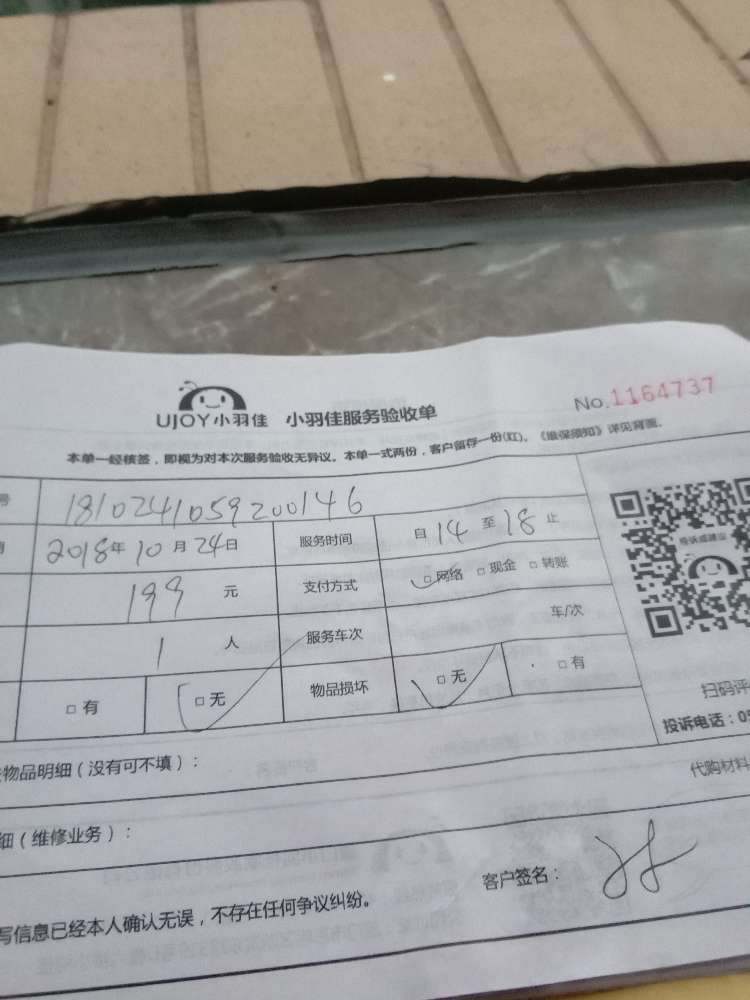 UJOY小羽佳 小羽佳服务验收单 No.1164737
本单一经核签，即视为对本次服务验收无异议。本单一式两份，客户留存一份(红)。《维保须知》详见背面。
号 1810241059200146
2018年10月24日 服务时间 自14至18止
199元 支付方式 □网络 □现金 □转账
1人 服务车次 车/次
□有 □无 物品损坏 □无 □有
投诉或建议
扫码评
投诉电话：05
物品明细（没有可不填）：
代购材料
细（维修业务）：
客户签名：
写信息已经本人确认无误，不存在任何争议纠纷。